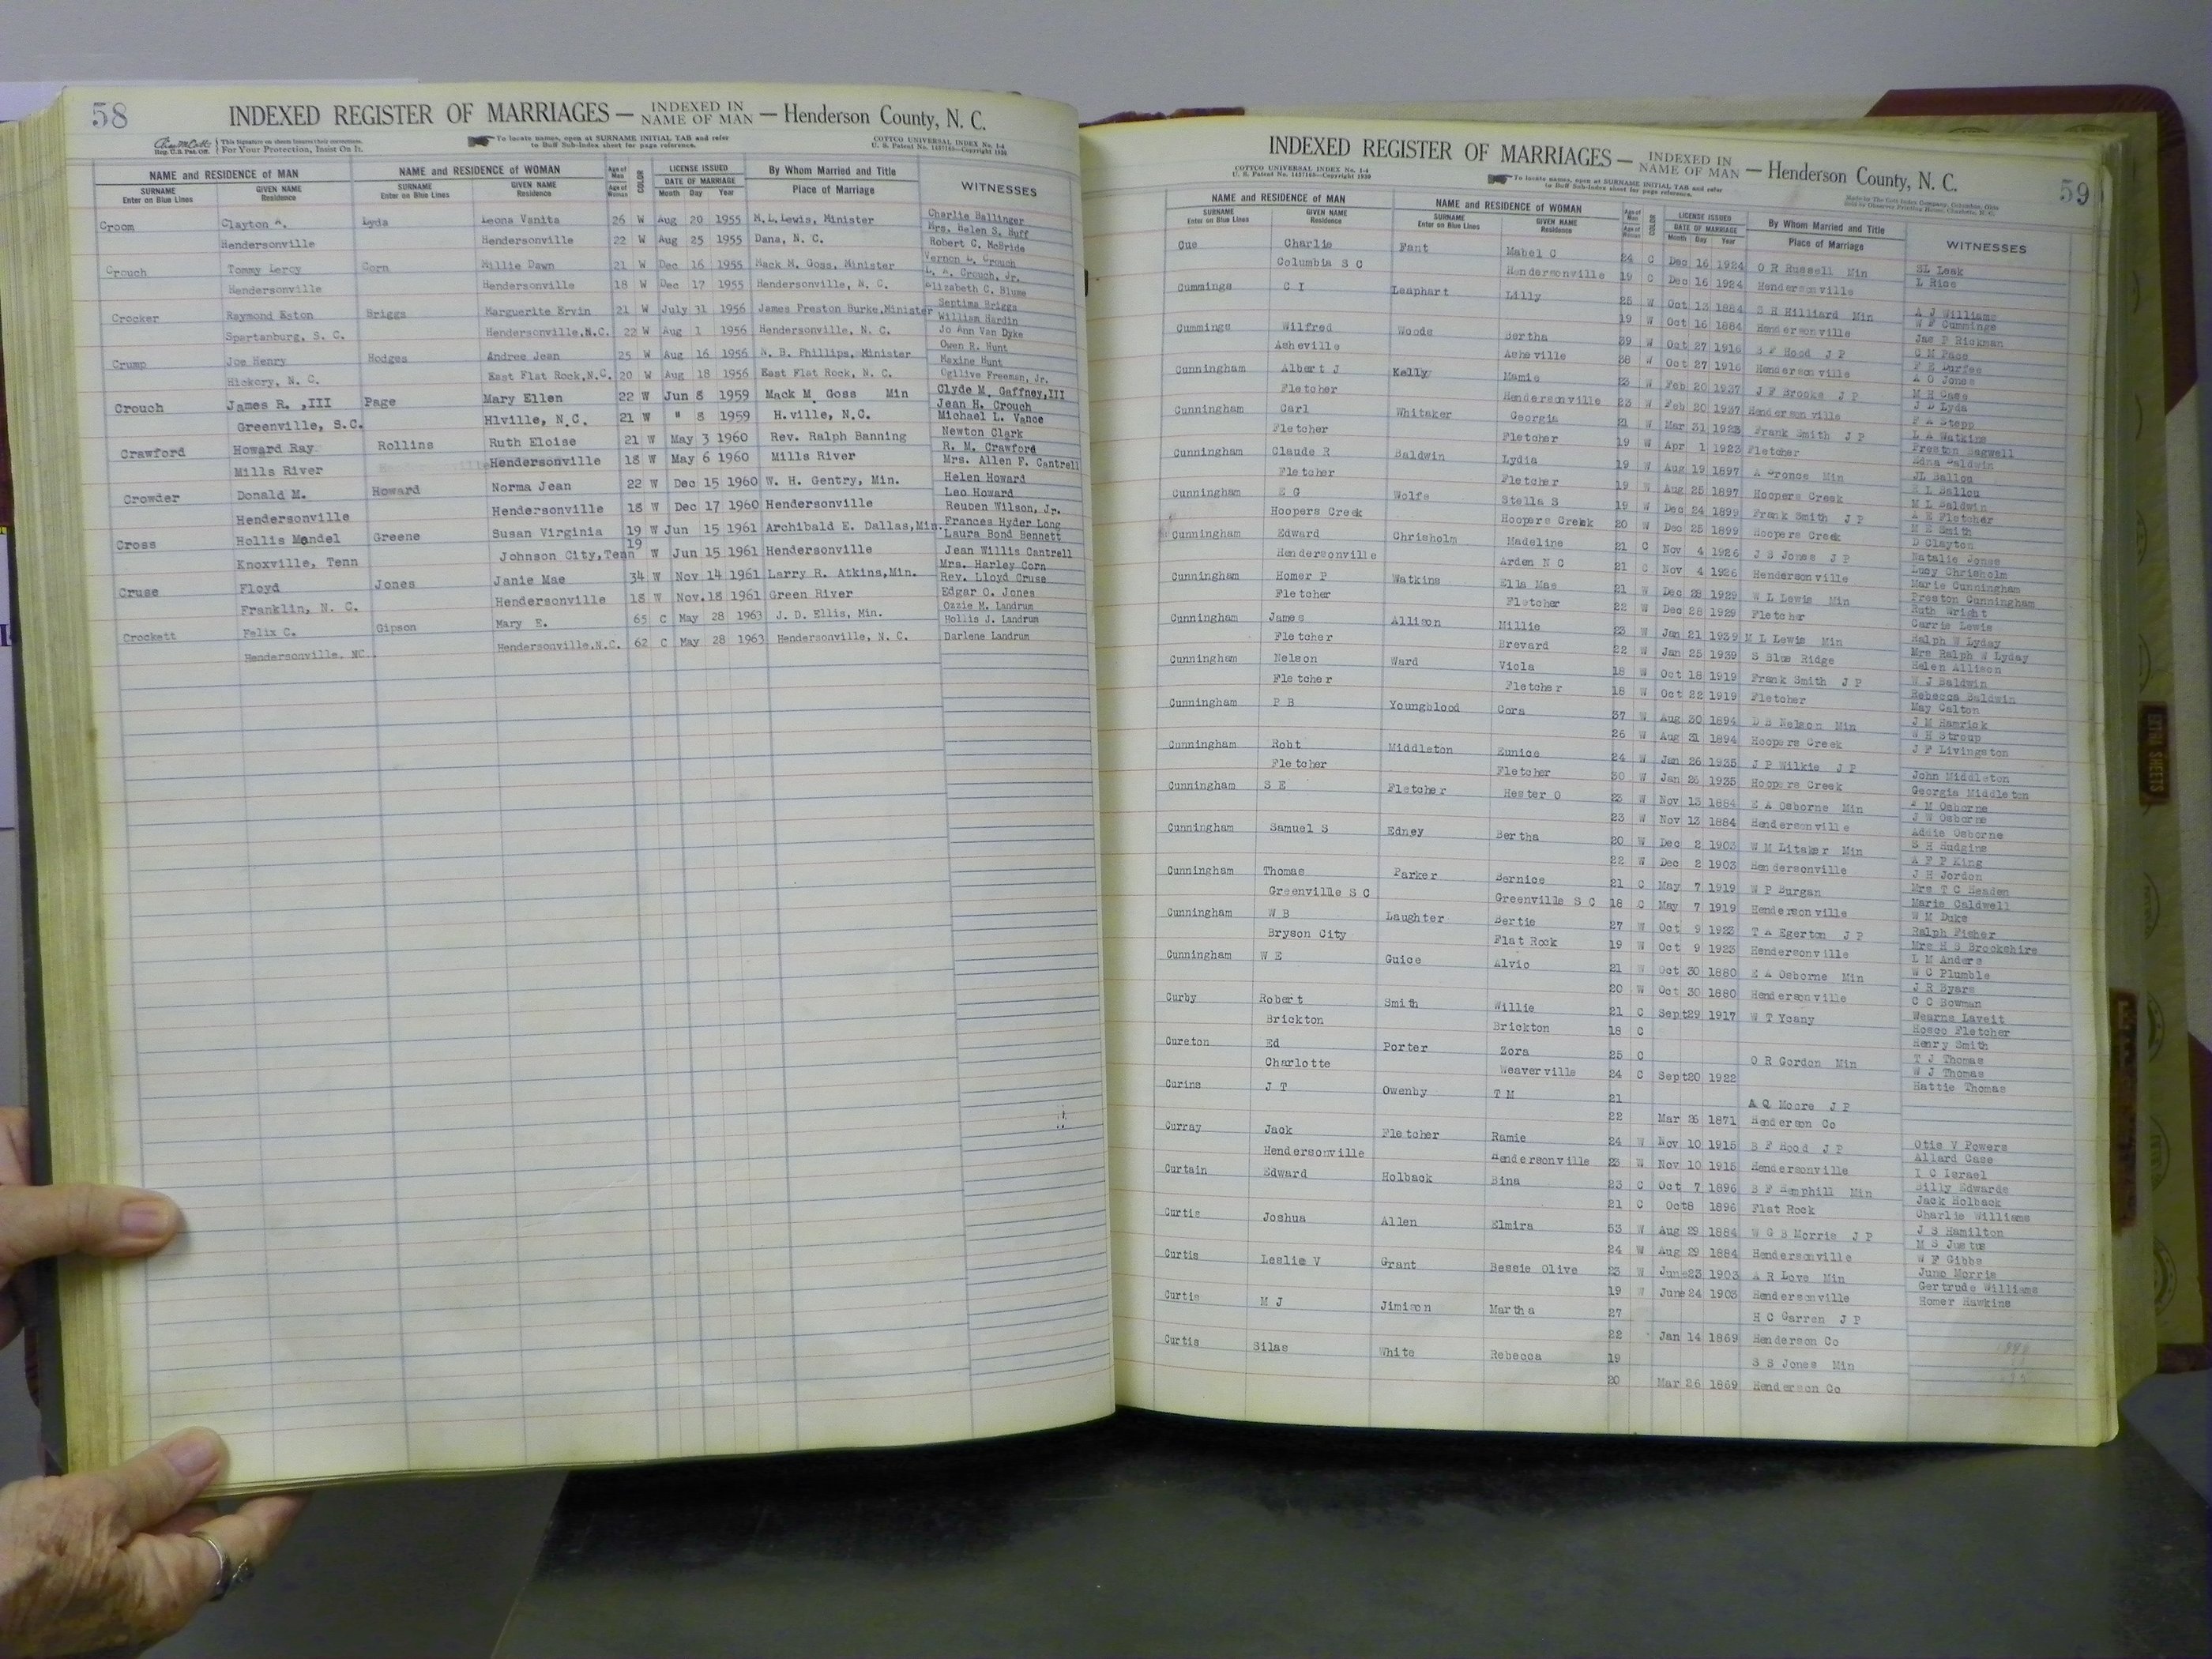 58
INDEXED REGISTER OF MARRIAGES — INDEXED IN NAME OF MAN — Henderson County, N. C.
This Signature on sheets Insures their correctness. For Your Protection, Insist On It.
To locate names, open at SURNAME INITIAL TAB and refer to Buff Sub-Index sheet for page reference.
COTTCO UNIVERSAL INDEX No. 1-4
NAME and RESIDENCE OF MAN NAME and RESIDENCE OF WOMAN Age of Man COLOR LICENSE ISSUED By Whom Married and Title WITNESSES
SURNAME Enter on Blue Lines GIVEN NAME Residence SURNAME Enter on Blue Lines GIVEN NAME Residence Age of Woman DATE OF MARRIAGE Month Day Year Place of Marriage
Croom Clayton A. Lyda Leona Vanita 26 W Aug 20 1955 M.L.Lewis, Minister Charlie Ballinger
Mrs. Helen S. Huff
Hendersonville Hendersonville 22 W Aug 25 1955 Dana, N. C. Robert C. McBride
Crouch Tommy Leroy Corn Millie Dawn 21 W Dec 16 1955 Mack M. Goss, Minister Vernon L. Crouch
L. A. Crouch, Jr.
Hendersonville Hendersonville 18 W Dec 17 1955 Hendersonville, N. C. Elizabeth C. Blume
Crocker Raymond Eston Briggs Marguerite Ervin 21 W July 31 1956 James Preston Burke,Minister Septima Briggs
William Hardin
Spartanburg, S. C. Hendersonville,N.C. 22 W Aug 1 1956 Hendersonville, N. C. Jo Ann Van Dyke
Crump Joe Henry Hodges Andree Jean 25 W Aug 16 1956 N. B. Phillips, Minister Owen R. Hunt
Maxine Hunt
Hickory, N. C. East Flat Rock,N.C. 20 W Aug 18 1956 East Flat Rock, N. C. Ogilive Freeman, Jr.
Crouch James R. ,III Page Mary Ellen 22 W Jun 8 1959 Mack M. Goss Min Clyde M. Gaffney,III
Jean H. Crouch
Greenville, S.C. Hlville, N.C. 21 W " 8 1959 H.ville, N.C. Michael L. Vance
Crawford Howard Ray Rollins Ruth Eloise 21 W May 3 1960 Rev. Ralph Banning Newton Clark
R. M. Crawford
Mills River Hendersonville 18 W May 6 1960 Mills River Mrs. Allen F. Cantrell
Crowder Donald M. Howard Norma Jean 22 W Dec 15 1960 W. H. Gentry, Min. Helen Howard
Leo Howard
Hendersonville Hendersonville 18 W Dec 17 1960 Hendersonville Reuben Wilson, Jr.
Cross Hollis Mandel Greene Susan Virginia 19 W Jun 15 1961 Archibald E. Dallas,Min. Frances Hyder Long
Laura Bond Bennett
Knoxville, Tenn Johnson City,Tenn 19 W Jun 15 1961 Hendersonville Jean Willis Cantrell
Cruse Floyd Jones Janie Mae 34 W Nov 14 1961 Larry R. Atkins,Min. Mrs. Harley Corn
Rev. Lloyd Cruse
Franklin, N. C. Hendersonville 18 W Nov.18 1961 Green River Edgar O. Jones
Crockett Felix C. Gipson Mary E. 65 C May 28 1963 J. D. Ellis, Min. Ozzie M. Landrum
Hollis J. Landrum
Hendersonville, NC. Hendersonville,N.C. 62 C May 28 1963 Hendersonville, N. C. Darlene Landrum
59
INDEXED REGISTER OF MARRIAGES — INDEXED IN NAME OF MAN — Henderson County, N. C.
COTTCO UNIVERSAL INDEX No. 1-4
To locate names, open at SURNAME INITIAL TAB and refer to Buff Sub-Index sheet for page reference.
NAME and RESIDENCE OF MAN NAME and RESIDENCE OF WOMAN Age of Man COLOR LICENSE ISSUED By Whom Married and Title WITNESSES
SURNAME Enter on Blue Lines GIVEN NAME Residence SURNAME Enter on Blue Lines GIVEN NAME Residence Age of Woman DATE OF MARRIAGE Month Day Year Place of Marriage
Cue Charlie Fant Mabel C 24 C Dec 16 1924 O R Russell Min SL Leak
Columbia S C Hendersonville 19 C Dec 16 1924 Hendersonville L Rice
Cummings C I Leaphart Lilly 25 W Oct 13 1884 S H Hilliard Min A J Williams
19 W Oct 16 1884 Hendersonville W F Cummings
Jas P Rickman
Cummings Wilfred Woods Bertha 39 W Oct 27 1916 B F Hood J P C M Pace
Asheville Asheville 38 W Oct 27 1916 Hendersonville F E Durfee
A O Jones
Cunningham Albert J Kelly Mamie 23 W Feb 20 1937 J F Brooks J P M H Case
Fletcher Hendersonville 23 W Feb 20 1937 Hendersonville J D Lyda
F A Stepp
Cunningham Carl Whitaker Georgia 21 W Mar 31 1923 Frank Smith J P L A Watkins
Fletcher Fletcher 19 W Apr 1 1923 Fletcher Preston Bagwell
Edna Baldwin
Cunningham Claude R Baldwin Lydia 19 W Aug 19 1897 Min JL Ballou
Fletcher Fletcher 19 W Aug 25 1897 Hoopers Creek E L Ballou
M L Baldwin
Cunningham E G Wolfe Stella S 19 W Dec 24 1899 Frank Smith J P A E Fletcher
Hoopers Creek Hoopers Creek 20 W Dec 25 1899 Hoopers Creek M E Smith
D Clayton
Cunningham Edward Chrisholm Madeline 21 C Nov 4 1926 J S Jones J P Natalie Jones
Hendersonville Arden N C 21 C Nov 4 1926 Hendersonville Lucy Chrisholm
Marie Cunningham
Cunningham Homer P Watkins Ella Mae 21 W Dec 28 1929 W L Lewis Min Preston Cunningham
Fletcher Fletcher 22 W Dec 28 1929 Fletcher Ruth Wright
Carrie Lewis
Cunningham James Allison Millie 23 W Jan 21 1939 M L Lewis Min Ralph W Lyday
Fletcher Brevard 22 W Jan 25 1939 S Blue Ridge Mrs Ralph W Lyday
Helen Allison
Cunningham Nelson Ward Viola 18 W Oct 18 1919 Frank Smith J P W J Baldwin
Fletcher Fletcher 18 W Oct 22 1919 Fletcher Rebecca Baldwin
May Calton
Cunningham P B Youngblood Cora 37 W Aug 30 1894 D B Nelson Min J M Hamrick
26 W Aug 31 1894 Hoopers Creek W H Stroup
J F Livingston
Cunningham Robt Middleton Eunice 24 W Jan 26 1935 J P Wilkie J P
Fletcher Fletcher 30 W Jan 26 1935 Hoopers Creek John Middleton
Georgia Middleton
Cunningham S E Fletcher Hester O 23 W Nov 13 1884 E A Osborne Min A M Osborne
23 W Nov 13 1884 Hendersonville J W Osborne
Addie Osborne
Cunningham Samuel S Edney Bertha 20 W Dec 2 1903 W M Litaker Min S H Hudgins
22 W Dec 2 1903 Hendersonville A F P King
J H Jordon
Cunningham Thomas Parker Bernice 21 C May 7 1919 W P Burgan Mrs T C Beaden
Greenville S C Greenville S C 18 C May 7 1919 Hendersonville Marie Caldwell
W M Duke
Cunningham W B Laughter Bertie 27 W Oct 9 1923 T A Egerton J P Ralph Fisher
Bryson City Flat Rock 19 W Oct 9 1923 Hendersonville Mrs H S Brookshire
L M Anders
Cunningham W E Guice Alvio 21 W Oct 30 1880 E A Osborne Min W C Plumble
20 W Oct 30 1880 Hendersonville J R Byars
C C Bowman
Curby Robert Smith Willie 21 C Sept29 1917 W T Yoany Wearns Laveit
Brickton Brickton 18 C Hosco Fletcher
Henry Smith
Cureton Ed Porter Zora 25 C O R Gordon Min T J Thomas
Charlotte Weaverville 24 C Sept20 1922 W J Thomas
Hattie Thomas
Curins J T Owenby T M 21 A Q Moore J P
22 Mar 26 1871 Henderson Co
Curray Jack Fletcher Ramie 24 W Nov 10 1915 B F Hood J P Otis V Powers
Hendersonville Hendersonville 23 W Nov 10 1915 Hendersonville Allard Case
T C Israel
Curtain Edward Holback Bina 23 C Oct 7 1896 B F Hemphill Min Billy Edwards
21 C Oct8 1896 Flat Rock Jack Holback
Charlie Williams
Curtis Joshua Allen Elmira 53 W Aug 29 1884 W G B Morris J P J S Hamilton
24 W Aug 29 1884 Hendersonville M S Justus
W F Gibbs
Curtis Leslie V Grant Bessie Olive 23 W June23 1903 A R Love Min Juno Morris
19 W June24 1903 Hendersonville Gertrude Williams
Homer Hawkins
Curtis M J Jimison Martha 27 H C Garren J P
22 Jan 14 1869 Henderson Co
Curtis Silas White Rebecca 19 S S Jones Min
20 Mar 26 1869 Henderson Co
EXTRA SHEETS